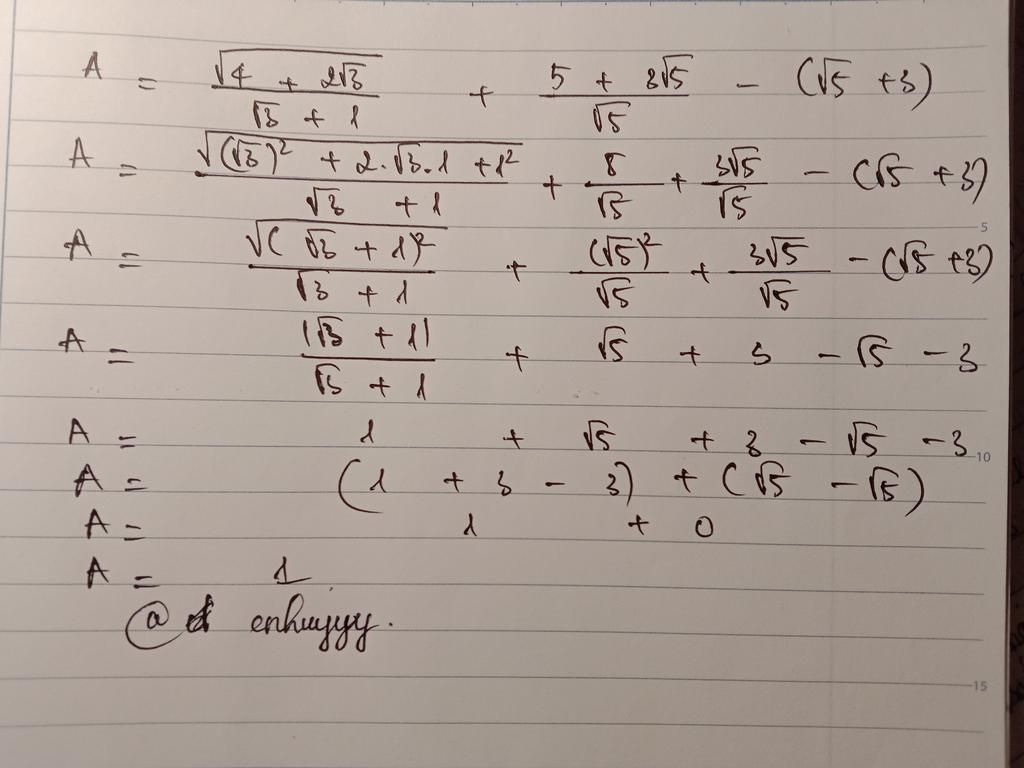 A = √(4 + 2√3) / (√3 + 1) + (5 + 3√5) / √5 - (√5 + 3)
A = √((√3)² + 2.√3.1 + 1²) / (√3 + 1) + 5/√5 + 3√5/√5 - (√5 + 3)
5
A = √((√3 + 1)²) / (√3 + 1) + (√5)²/√5 + 3√5/√5 - (√5 + 3)
A = |√3 + 1| / (√3 + 1) + √5 + 3 - √5 - 3
A = 1 + √5 + 3 - √5 - 3
10
A = (1 + 3 - 3) + (√5 - √5)
A = 1 + 0
A = 1
15